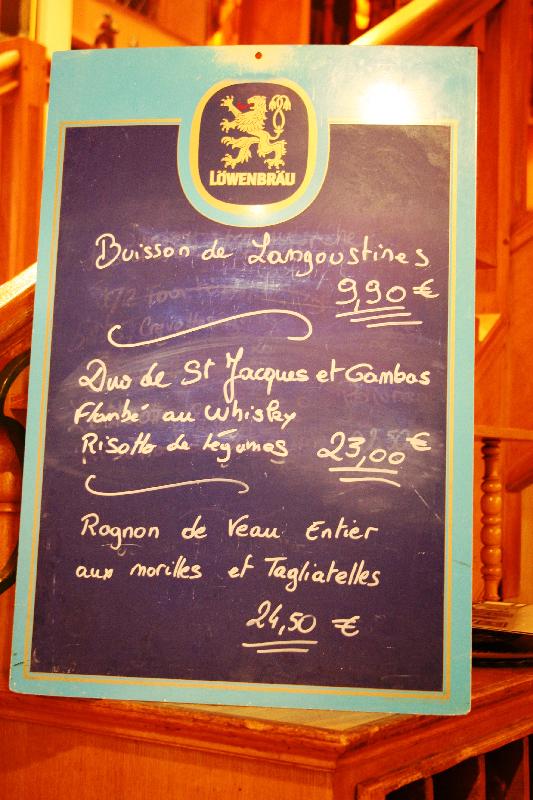 LÖWENBRÄU
Buisson de Langoustines
9,90 €
Duo de St Jacques et Gambas
Flambé au Whisky
Risotto de légumes 23,00 €
Rognon de Veau Entier
aux morilles et Tagliatelles
24,50 €